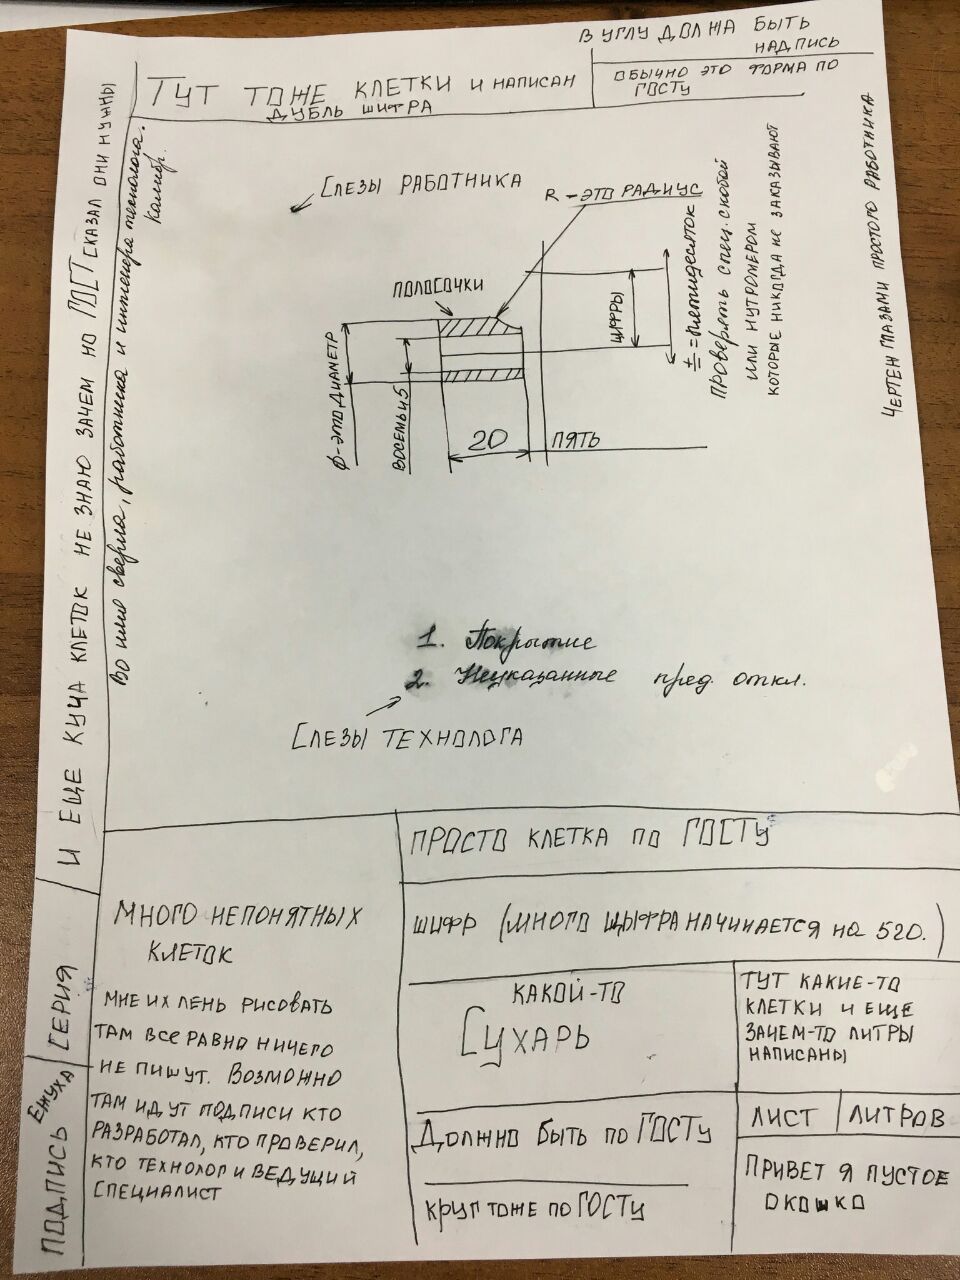 В УГЛУ ДОЛЖНА БЫТЬ
НАДПИСЬ
ОБЫЧНО ЭТО ФОРМА ПО
ГОСТУ
ТУТ ТОЖЕ КЛЕТКИ И НАПИСАН
ДУБЛЬ ШИФРА
И ЕЩЕ КУЧА КЛЕТОК НЕ ЗНАЮ ЗАЧЕМ НО ГОСТ СКАЗАЛ ОНИ НУЖНЫ
Во имя сверла, работника и инженера технолога.
СЛЕЗЫ РАБОТНИКА
R - ЭТО РАДИУС
ПОЛОСОЧКИ
ЦИФРЫ
± = ПЯТИДЕСЯТОК
ПРОВЕРЯТЬ СПЕЦ. СКОБОЙ
ИЛИ НУТРОМЕРОМ
КОТОРЫЕ НИКОГДА НЕ ЗАКАЗЫВАЮТ
ЧЕРТЕЖ ГЛАЗАМИ ПРОСТОГО РАБОТНИКА
Ф-ЭТО ДИАМЕТР
ВОСЕМЬ И 5
20
ПЯТЬ
1. Покрытие
2. Неуказанные пред. откл.
СЛЕЗЫ ТЕХНОЛОГА
ПРОСТО КЛЕТКА ПО ГОСТУ
ШИФР (МНОГО ЩЫФРА НАЧИНАЕТСЯ НА 520.)
МНОГО НЕПОНЯТНЫХ
КЛЕТОК
МНЕ ИХ ЛЕНЬ РИСОВАТЬ
ТАМ ВСЕ РАВНО НИЧЕГО
НЕ ПИШУТ. ВОЗМОЖНО
ТАМ ИДУТ ПОДПИСИ КТО
РАЗРАБОТАЛ, КТО ПРОВЕРИЛ,
КТО ТЕХНОЛОГ И ВЕДУЩИЙ
СПЕЦИАЛИСТ
КАКОЙ-ТО
СУХАРЬ
ТУТ КАКИЕ-ТО
КЛЕТКИ И ЕЩЕ
ЗАЧЕМ-ТО ЛИТРЫ
НАПИСАНЫ
ЛИСТ
ЛИТРОВ
ДОЛЖНО БЫТЬ ПО ГОСТУ
КРУГ ТОЖЕ ПО ГОСТУ
ПРИВЕТ Я ПУСТОЕ
ОКОШКО
СЕРИЯ
ПОДПИСЬ ЕЖУХА